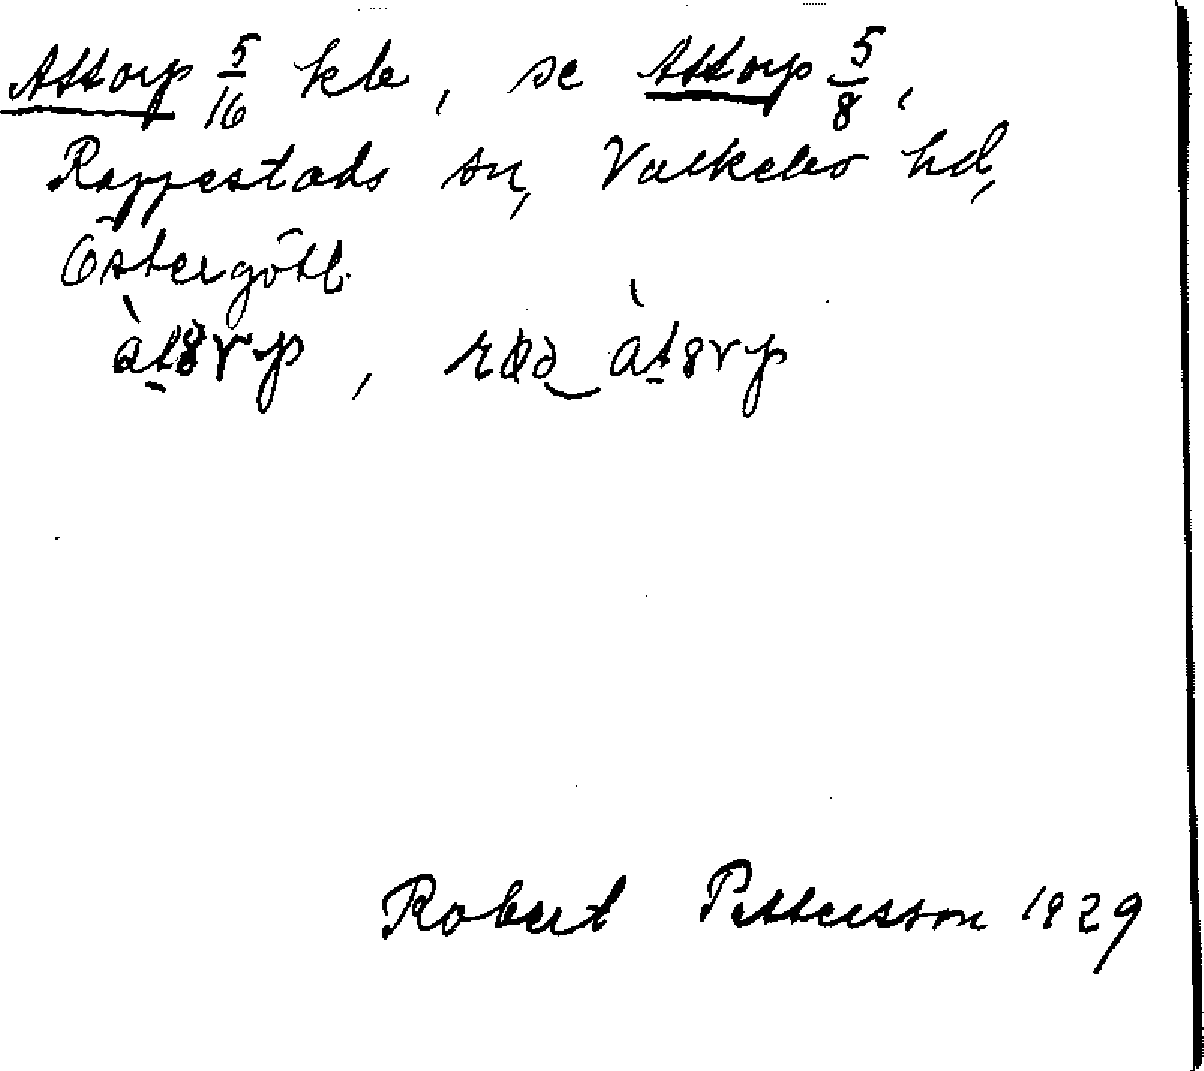 Attorp 5/16 kle, se Attorp 5/8,
Rappestads sn, Valkebo hd,
Östergötl.
àt8rp, àt8rp
Robert Pettersson 1929